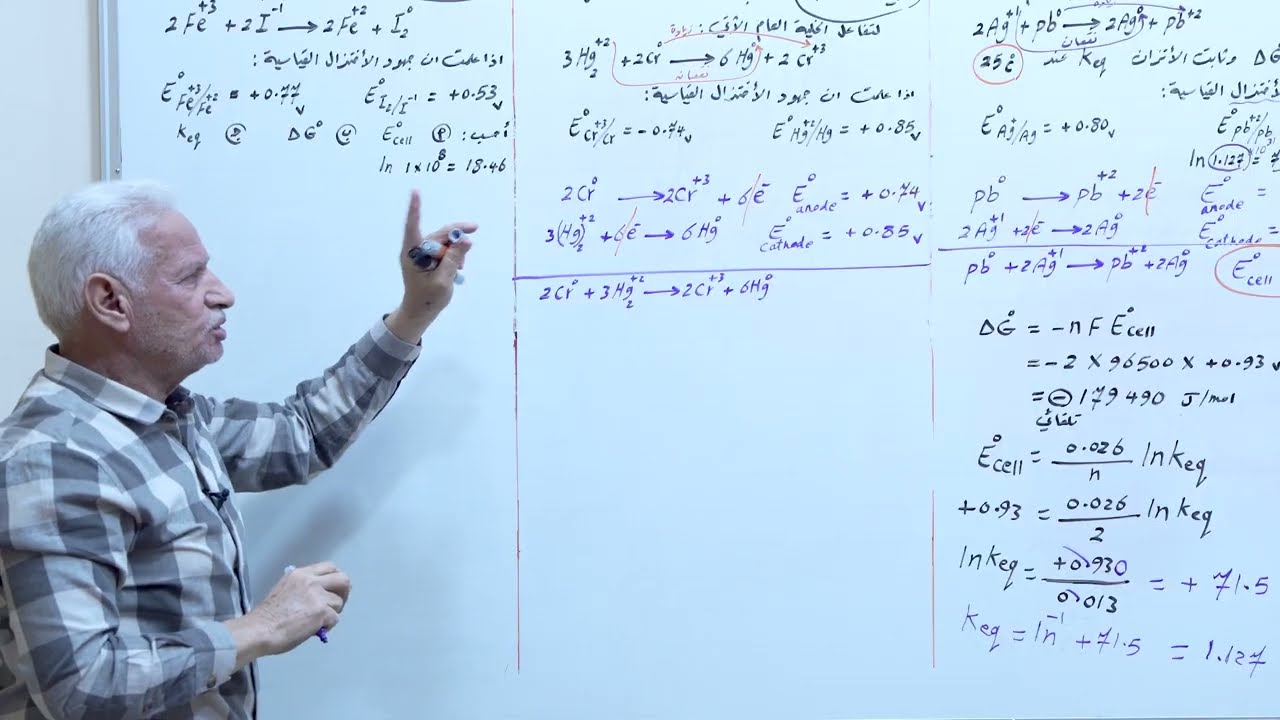 2Fe⁺³ + 2I⁻¹ → 2Fe⁺² + I₂
اذا علمت ان جهود الأختزال القياسية :
E°Fe⁺³/Fe⁺² = +0.77 E°I₂/I⁻¹ = +0.53
أحسب : E°cell ΔG° Keq
ln 1×10⁸ = 18.46
لتفاعل الخلية العام الآتي :
زيادة
3Hg₂⁺² + 2Cr° → 6Hg° + 2Cr⁺³
نقصان
اذا علمت ان جهود الأختزال القياسية :
E°Cr⁺³/Cr = −0.74 E°Hg⁺²/Hg = +0.85
2Cr° → 2Cr⁺³ + 6e⁻ E°anode = +0.74
3(Hg)₂⁺² + 6e⁻ → 6Hg° E°cathode = +0.85
2Cr° + 3Hg₂⁺² → 2Cr⁺³ + 6Hg°
2Ag⁺¹ + Pb° → 2Ag° + Pb⁺²
نقصان
ΔG وثابت الأتزان Keq عند 25
الأختزال القياسية :
E°Ag⁺/Ag = +0.80 E°Pb⁺²/Pb
ln 1.127
Pb° → Pb⁺² + 2e⁻ E°anode =
2Ag⁺¹ + 2e⁻ → 2Ag° E°cathode =
Pb° + 2Ag⁺¹ → Pb⁺² + 2Ag° E°cell
ΔG° = −nFE°cell
= −2 × 96500 × +0.93
= −179490 J/mol
تلقائي
E°cell = 0.026/n ln Keq
+0.93 = 0.026/2 ln Keq
ln Keq = +0.930/0.013 = +71.5
Keq = ln⁻¹ +71.5 = 1.127